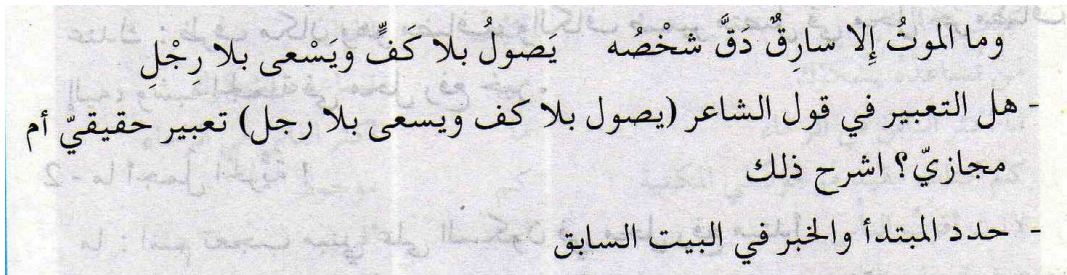 وما الموتُ إِلا سارِقٌ دَقَّ شخْصُه    يَصولُ بلا كَفٍّ ويَسْعى بلا رِجْلِ
- هل التعبير في قول الشاعر (يصول بلا كف ويسعى بلا رجل) تعبير حقيقيّ أم
مجازيّ؟ اشرح ذلك
- حدد المبتدأ والخبر في البيت السابق